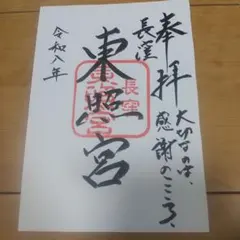 奉拝
大切なのは、
感謝のこころ、
長窪
東照宮
長窪
東照宮
令和八年